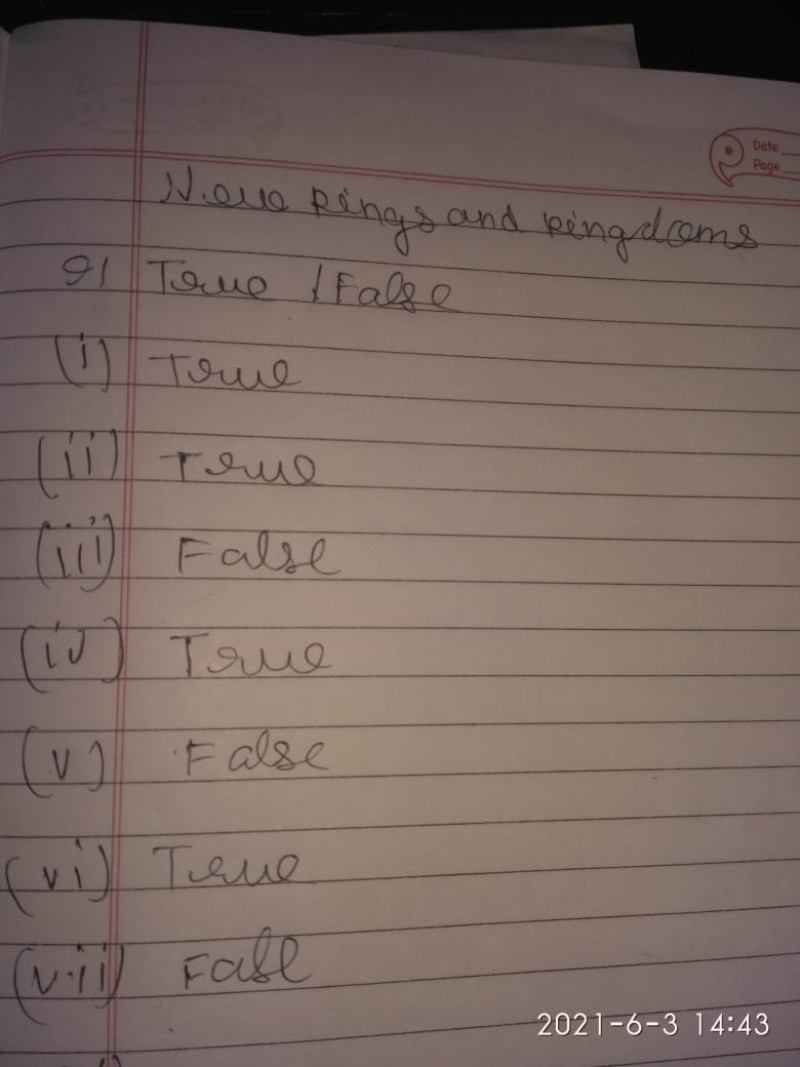 Date
Page
New kings and kingdoms
Q1 True / False
(i) True
(ii) True
(iii) False
(iv) True
(v) False
(vi) True
(vii) Fasl
2021-6-3 14:43